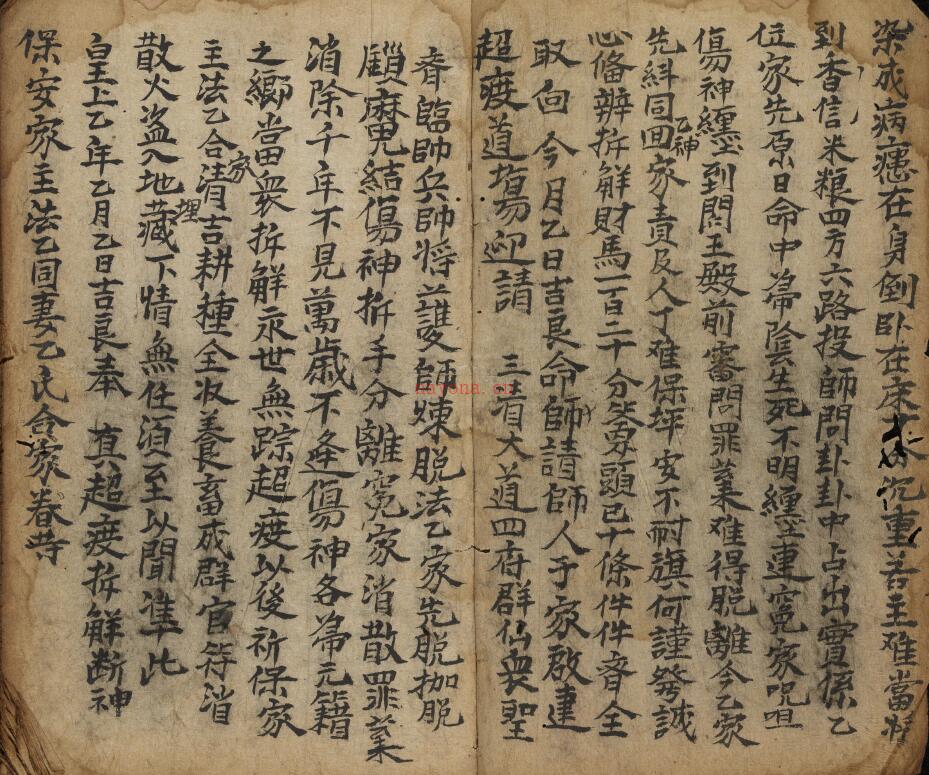 染成病患在身倒臥在床沉重善主难當將
到香信米粮四方六路投師問卦卦中占出實係乙
位家先原日命中帰陰生死不明纏连冤家咒咀
傷神纏到閆王殿前審問罪業难得脫離今乙家
乙神
先糾同回家責及人丁难保坪安不耐旗何謹發誠
心俻辨拆觧財馬一百二十分筭頭已十條件件斉全
取向今月乙日吉良命師請師人于家啟建
超度道塲迎請 三清大道四府群仙衆聖
斉臨帥兵帥将護師煉脫法乙家先脫枷脫
鎖麻兇結傷神拆手分離冤家消散罪業
消除千年不見萬歲不逢傷神各帰元籍
之鄉當衆拆解永世無踪超度以後祈保家
家
主法乙合清吉耕種全收養畜成群官符消
散火盗入地藏下情無任須至以聞準此
埋
皇上乙年乙月乙日吉良奉 真超度拆解断神
保安家主法乙同妻乙氏合家眷等
nayona.cn